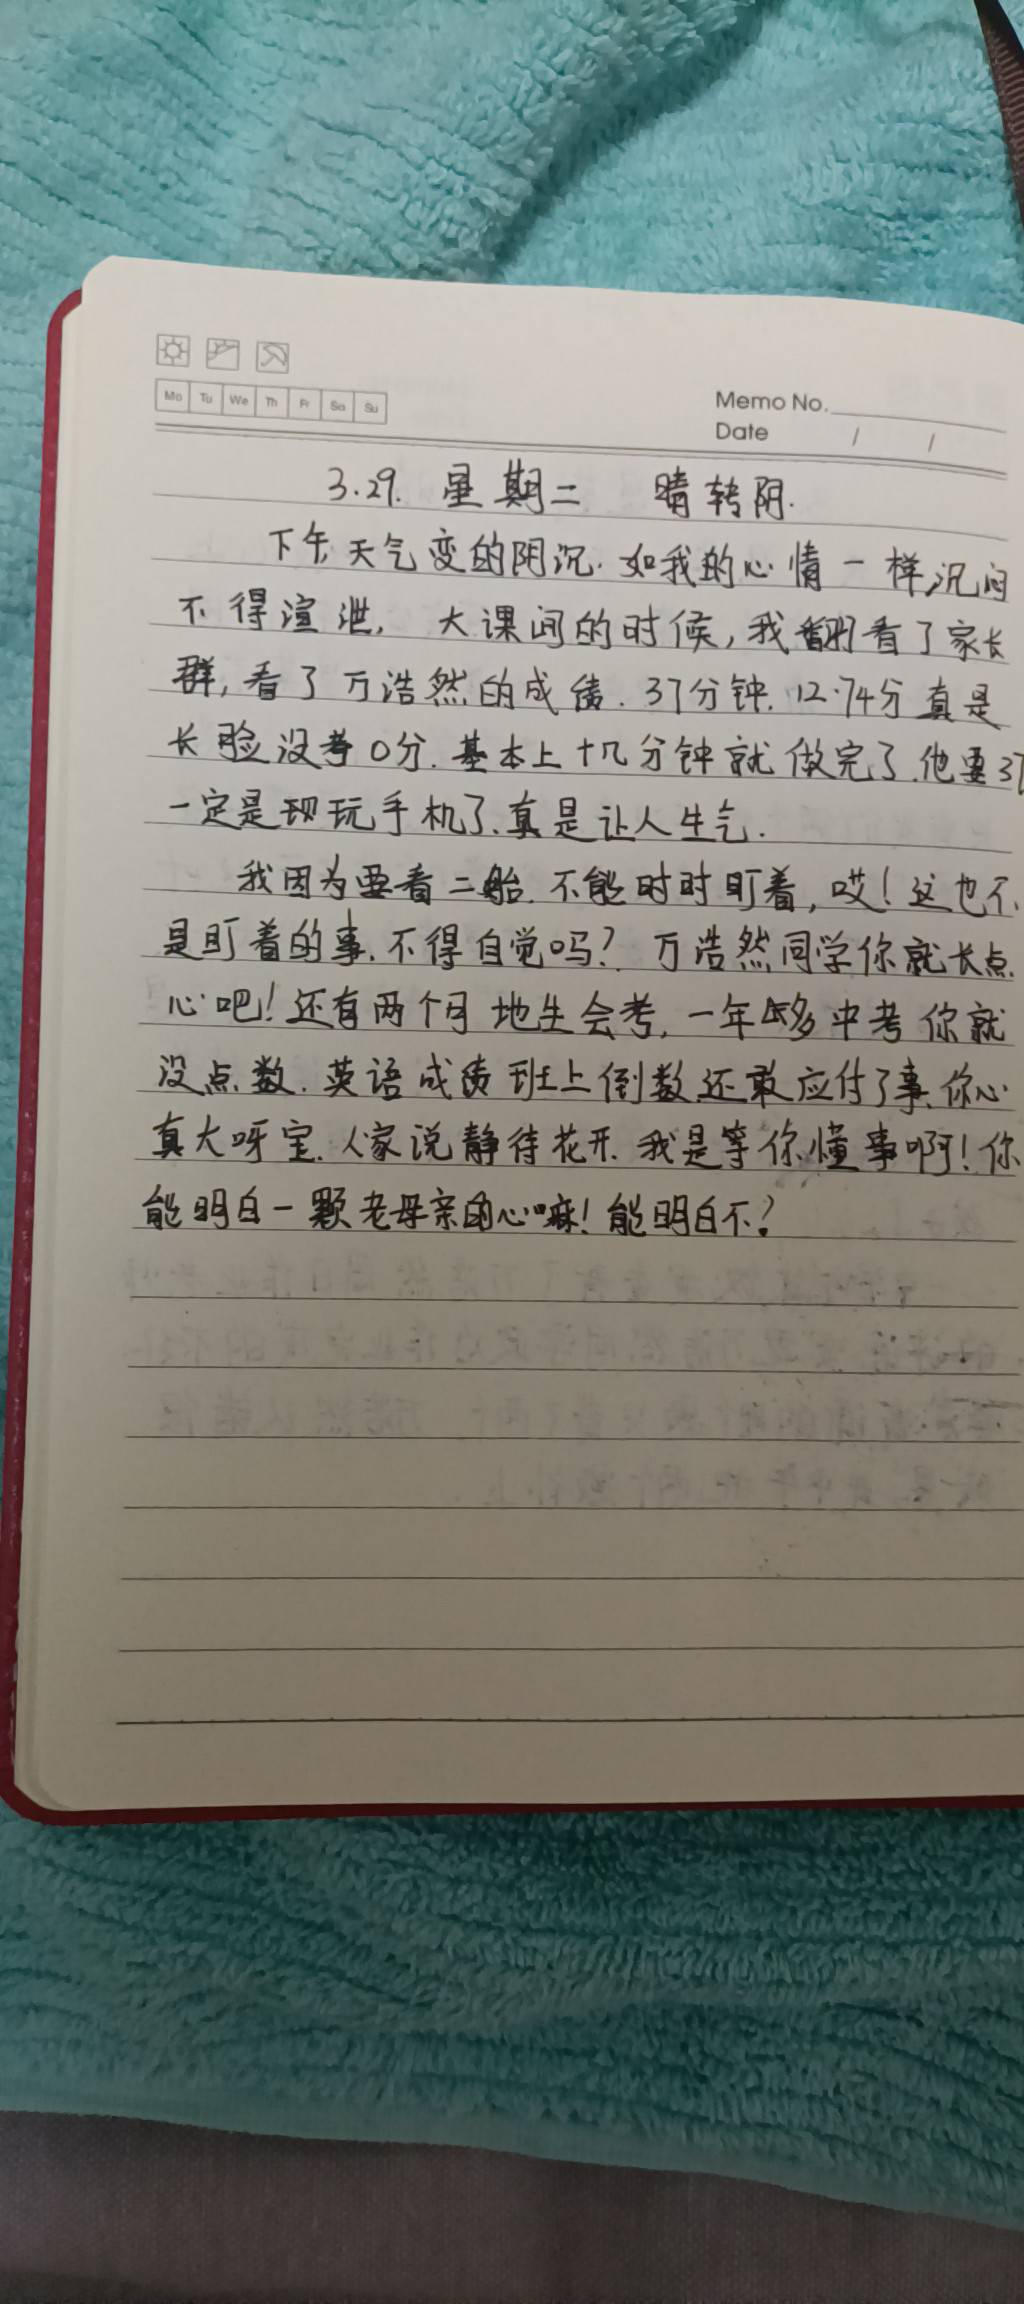 Mo Tu We Th Fr Sa Su
Memo No.
Date / /
3.29. 星期二 晴转阴.
下午天气变的阴沉.如我的心情一样沉闷
不得渲泄, 大课间的时候,我翻看了家长
群,看了万浩然的成绩.37分钟.12.74分真是
长脸没考0分.基本上十几分钟就做完了.他要37
一定是玩手机了.真是让人生气.
我因为要看二胎.不能时时盯着,哎!这也不
是盯着的事.不得自觉吗?万浩然同学你就长点
心吧!还有两个月地生会考,一年多中考你就
没点数.英语成绩班上倒数还敢应付了事.你心
真大呀宝.人家说静待花开.我是等你懂事啊!你
能明白一颗老母亲的心嘛!能明白不?